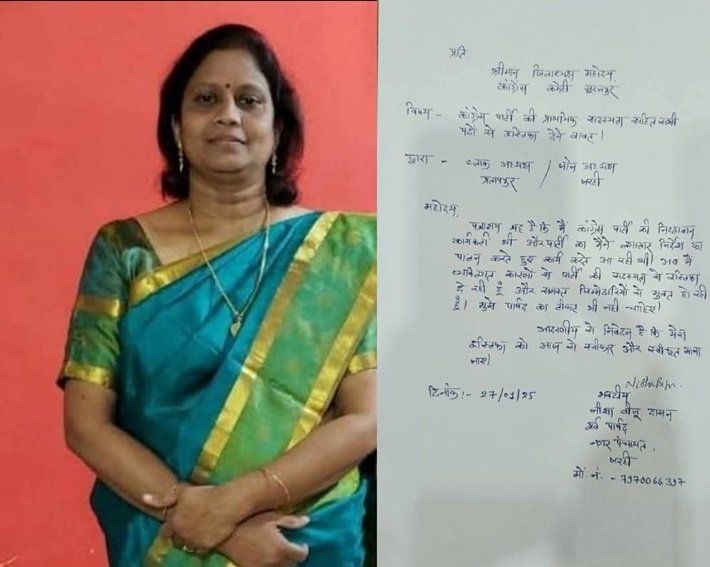 प्रति,
श्रीमान जिलाध्यक्ष महोदय,
कांग्रेस कमेटी सूरजपुर
विषय - कांग्रेस पार्टी की प्राथमिक सदस्यता सहित सभी
पदों से इस्तिफा देने बाबत।
द्वारा - ब्लाक अध्यक्ष / जोन अध्यक्ष
प्रतापपुर जरही
महोदय,
यह है कि मैं कांग्रेस पार्टी की निष्ठावान
कार्यकर्ता थी और पार्टी का मैंने लगातार निर्देश का
पालन करते हुए कार्य करते आ रही थी। अब मैं
व्यक्तिगत कारणों से पार्टी की सदस्यता से इस्तिफा
दे रही हूँ और समस्त जिम्मेदारियों से मुक्त हो रही
हूँ। मुझे पार्षद का टीकट भी नहीं चाहिए।
आदरणीय से निवेदन है कि मेरा
इस्तिफा को आज से स्वीकार और स्वीकृत माना
जाए।
दिनांक:- 27/01/25
भवदीय
बीजू दासन
पूर्व पार्षद
नगर पंचायत,
जरही
मो. नं. - 7970066397